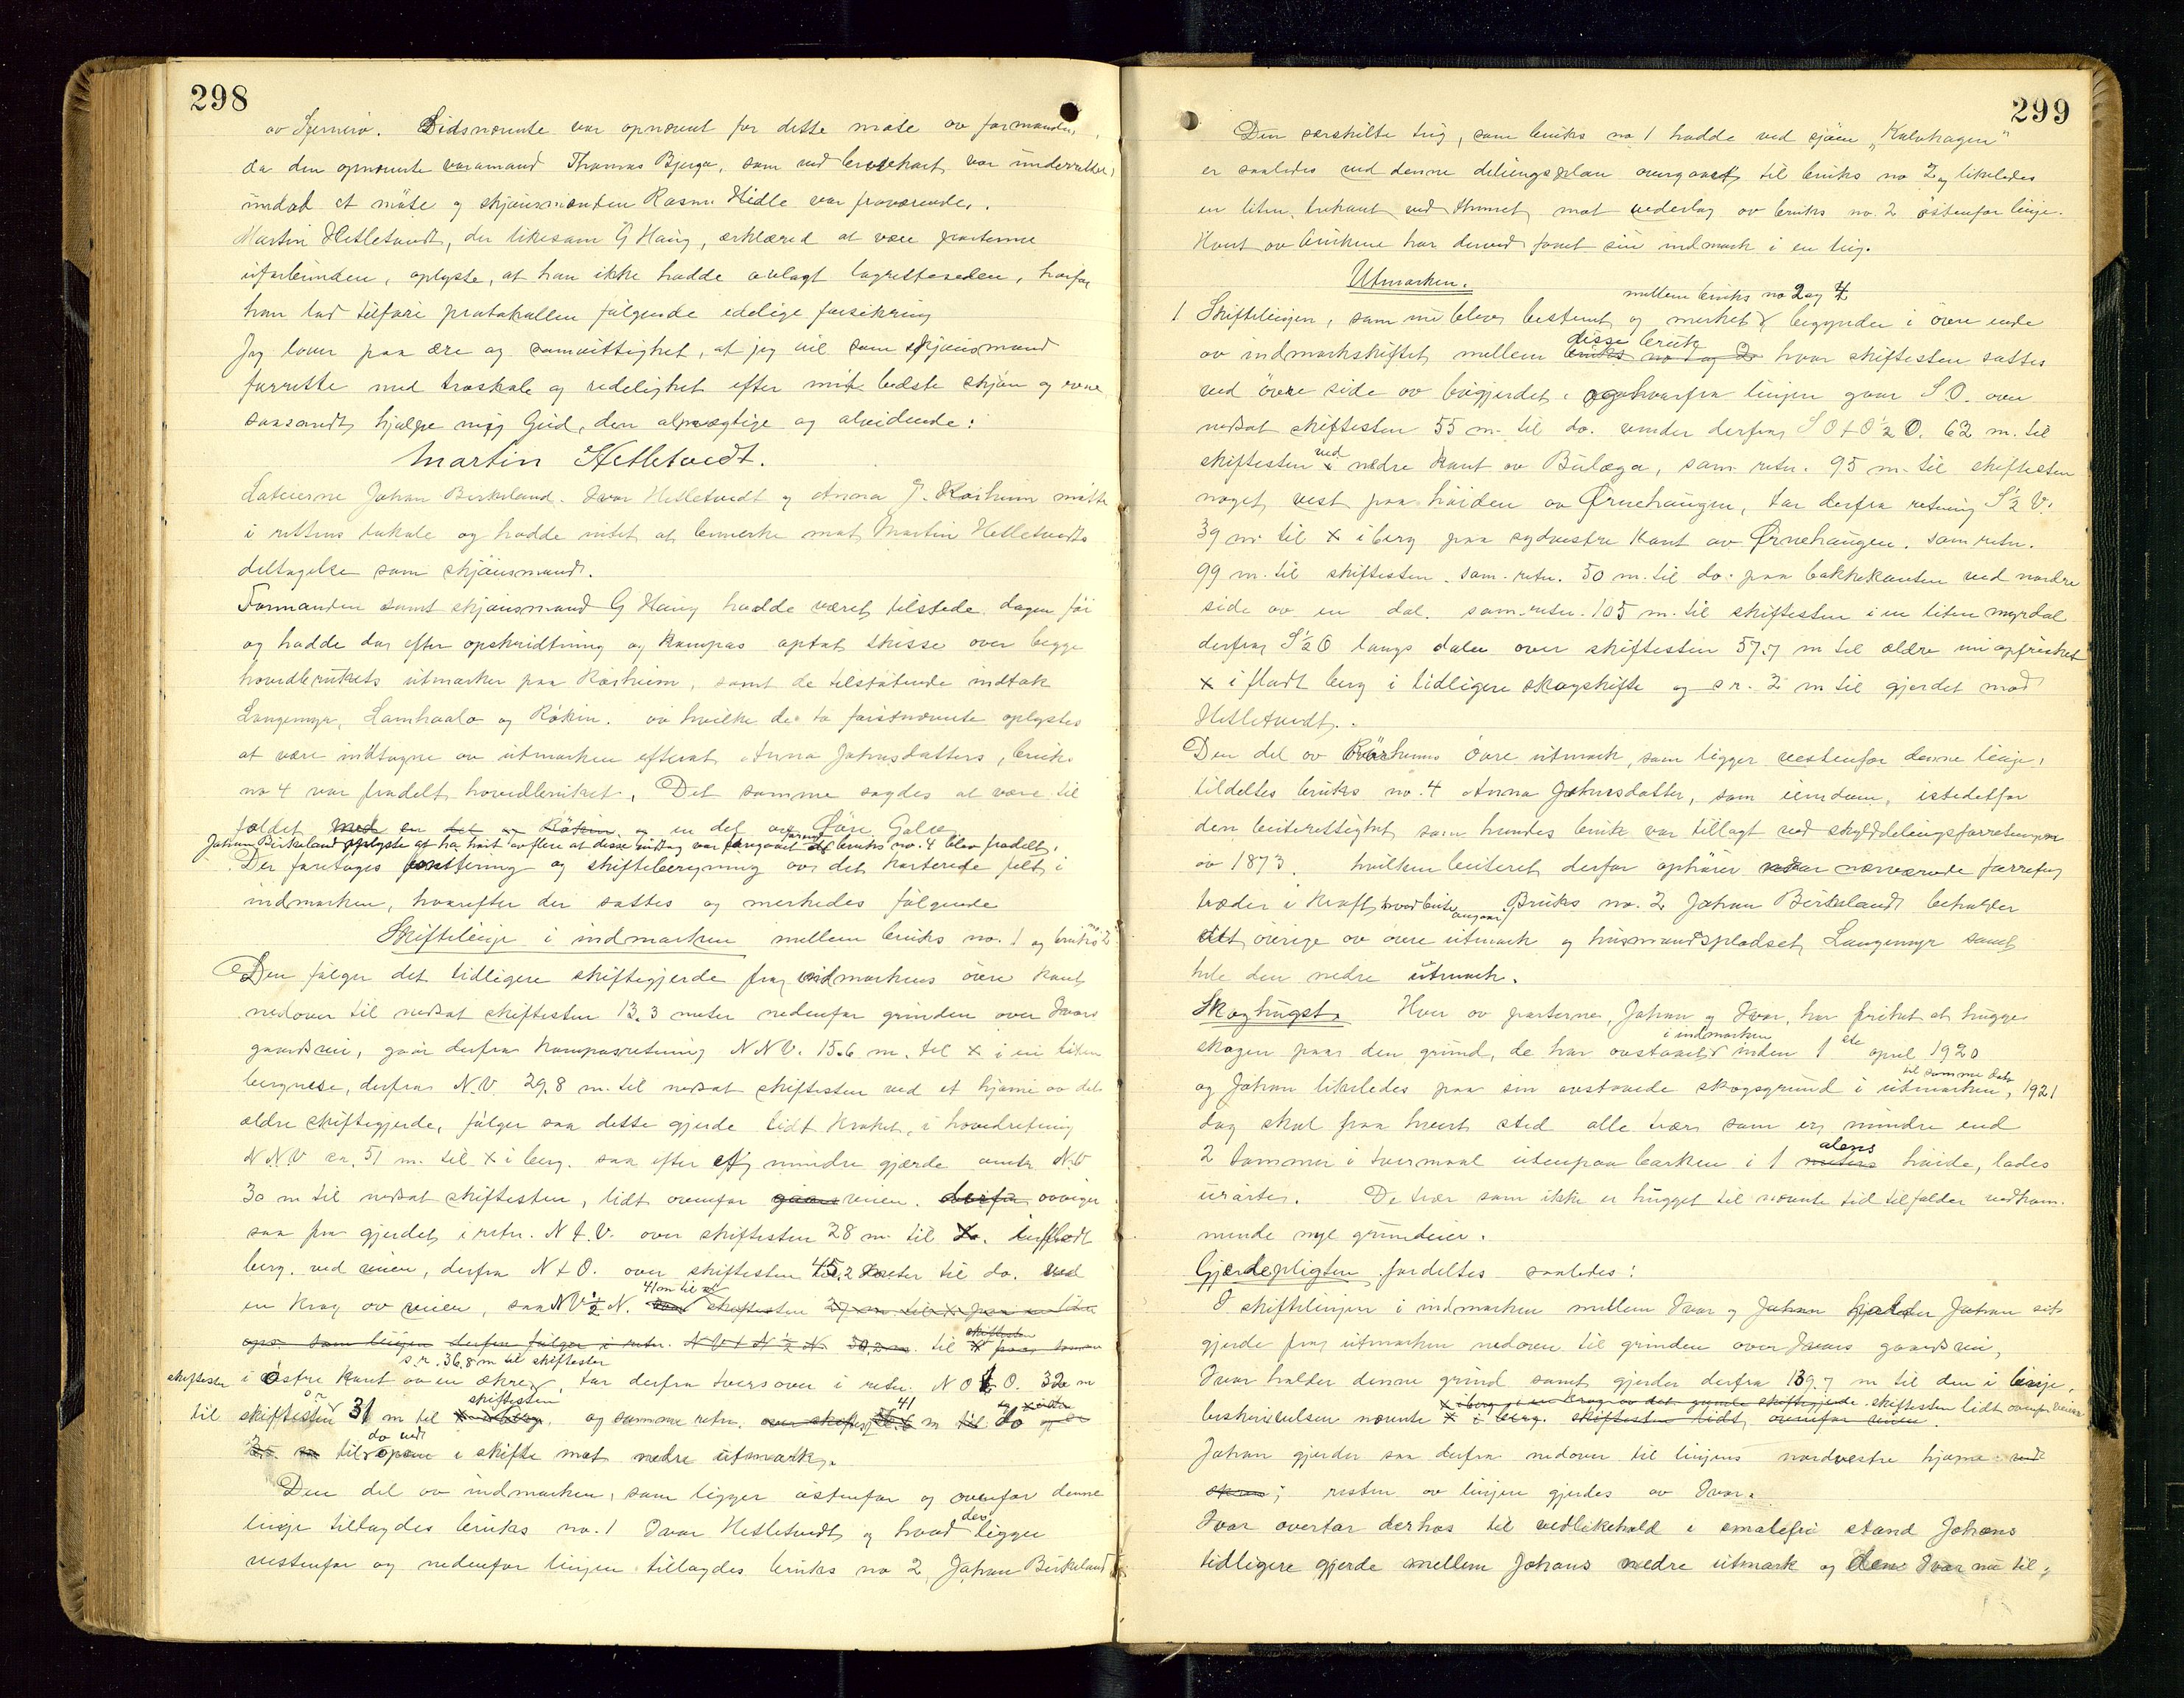 298
av Sjernerö. Sidsnævnte var opnævnt for dette møte av formanden,
da den opnævnte varamand Thomas Bjerga, som ved brevkort var underrettet,
undlod at møte og skjønsmanden Rasm. Hidle var fraværende.
Martin Hetletvedt, der likesom G Haug, erklæred at være parterne
uforbunden, oplyste, at han ikke hadde avlagt lagretteseden, hvorfor
han lod tilføre protokollen følgende edelige forsikring
Jeg lover paa ære og samvittighet, at jeg vil som skjønsmand
forrette med troskab og redelighet efter mit bedste skjøn og evne
saasandt hjælpe mig Gud, den almægtige og alvidende:
Martin Hetletvedt.
Loteierne Johan Birkeland. Ivar Hetletvedt og Anna J. Røsheim møtte
i rettens lokale og hadde intet at bemerke mot Martin Hetletvedts
deltagelse som skjønsmand.
Formanden samt skjønsmand G Haug hadde været tilstede dagen før
og hadde da efter opskridtning og kompas optat skisse over begge
hovedbrukets utmarker paa Røsheim, samt de tilstøtende indtak
Langemyr, Lamhaala og Røkin. av hvilke de to førstnævnte oplystes
at være indtagne av utmarken efterat Anna Johnsdatters, bruks
no 4 var fradelt hovedbruket. Det samme sagdes at være til
fældet med en del av Røkin og en del av Øvre Galve.
Johan Birkeland oplyste at ha hørt av flere at disse indtag var foregaaet førend bruks no. 4 blev fradelt.
Der foretages bonitering og skifteberegning av det karterede felt i
indmarken, hvorefter der sattes og merkedes følgende
Skiftelinje i indmarken mellem bruks no. 1 og bruks no 2
Den følger det tidligere skiftegjerde fra indmarkens øvre kant
nedover til nedsat skiftesten 13.3 meter nedenfor grinden over Ivars
gaardsvei, gaar derfra kompasretning NNV. 15.6 m. til x i en liten
bergnese, derfra N.V. 29.8 m. til nedsat skiftesten ved et hjørne av det
ældre skiftegjerde, følger saa dette gjerde lidt kroket, i hovedretning
NNV ca. 51 m. til x i berg. saa efter et mindre gjærde omtr. N.V
30 m til nedsat skiftesten, lidt ovenfor gaards veien. derfra avviger
saa fra gjerdet i retn. N t. V. over skiftesten 28 m. til x i fladt
berg. ved veien, derfra N t O. over skiftesten 45,2 meter til do. ved
41 m til x
en krog av veien, saa NV ½ N. skiftesten 27 m til x paa en liten
op som linjen derfra følger i retn. NV t N ½ N 30,2 m. til skiftesten x paa samme
s.r. 36,8 m til skiftesten
skiftesten i østre kant av en ækre, tar derfra tversover i retn. N O t O. 32 m
til skiftesten s r 31 m til skiftesten x i berg. og samme retn. over skiftest 41 m til do
til do ved opene i skifte mot nedre utmark.
Den del av indmarken, som ligger østenfor og ovenfor denne
linje tillagdes bruks no. 1 Ivar Hetletvedt og hvad der ligger
vestenfor og nedenfor linjen tillagdes bruks no 2 Johan Birkeland
299
Den særskilte teig, som bruks no 1 hadde ved sjøen „Kalvhagen"
er saaledes ved denne delingsplan overgaaet til bruks no 2 og likeledes
en liten trekant ved tunet mot vederlag av bruks no. 2 østenfor linje.
Hvert av brukene har derved faaet sin indmark i en teig.
Utmarken.
mellem bruks no 2 og 4
1 Skiftelinjen, som nu blev bestemt og merket begynder i øvre ende
av indmarkskiftet mellem disse bruk bruks no 1 og 2 hvor skiftesten sattes
ved øvre side av bøgjerdet. og hvorfra linjen gaar S O. over
nedsat skiftesten 55 m. til do. vender derfra S O t O ½ O. 62 m. til
skiftesten ved nedre kant av Bulægo, sam. retn. 95 m. til skiftesten
noget vest paa høiden av Ørnehaugen, tar derfra retning S ½ V.
39 m. til x i berg paa sydvestre kant av Ørnehaugen. sam retn.
99 m. til skiftesten. sam. retn. 50 m. til do. paa bakkekanten ved nordre
side av en dal. sam. retn. 105 m. til skiftesten i en liten myrdal
derfra S ½ O langs dalen over skiftesten 57.7 m til ældre nu opfrisket
x i fladt berg i tidligere skogskifte og s r. 2 m til gjerdet mod
Hetletvedt.
Den del av Røsheims øvre utmark, som ligger vestenfor denne linje,
tildeltes bruks no. 4 Anna Johnsdatter, som eiendom, istedetfor
den beiterettighet som hendes bruk var tillagt ved skylddelingsforretningen
av 1873. hvilken beiteret derfor ophører naar nærværende forretn.
træder i kraft hvad beite angaar. Bruks no. 2 Johan Birkeland beholder
det øvrige av øvre utmark og husmandspladset Langemyr samt
hele den nedre utmark.
Skoghugst. Hver av parterne, Johan og Ivar, har frihet at hugge
skogen paa den grund, de har avstaaet i indmarken inden 1ste april 1920
og Johan likeledes paa sin avstaaede skogsgrund i utmarken, til samme dato 1921
dog skal paa hvert sted alle trær som er mindre end
2 tommer i tvermaal utenpaa barken i 1 alens meters høide, lades
urørte. De trær som ikke er hugget til nævnte tid tilfalder vedkom-
mende nye grundeier.
Gjærdepligten fordeltes saaledes:
I skiftelinjen i indmarken mellem Ivar og Johan holder Johan sit
gjerde fra utmarken nedover til grinden over Ivars gaardsvei,
Ivar holder denne grind samt gjerder derfra 139.7 m til den i linje-
x i berg i en krog av det gamle skiftegjerde skiftesten lidt ovenfor veien
beskrivelsen nævnte x i berg. skiftesten lidt ovenfor veien.
Johan gjerder saa derfra nedover til linjens nordvestre hjørne ved
opene; resten av linjen gjerdes av Ivar.
Ivar overtar derhos til vedlikehold i smalefri stand Johans
tidligere gjerde mellem Johans nedre utmark og den Ivar nu til-